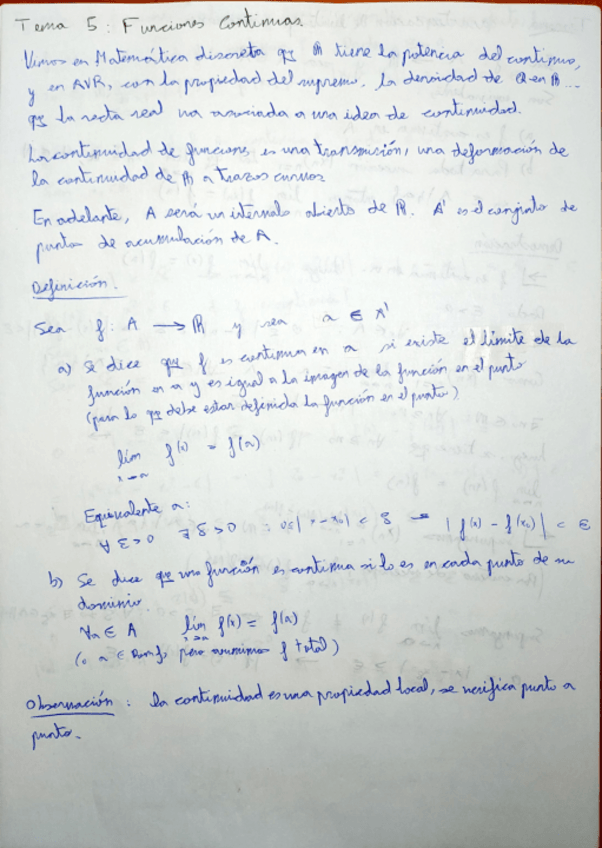 Tema 5: Funciones Continuas.
Vimos en Matemática discreta que ℝ tiene la potencia del continuo,
y en AVR, con la propiedad del supremo, la densidad de Q en ℝ...
que la recta real va asociada a una idea de continuidad.
La continuidad de funciones, es una transmisión, una deformación de
la continuidad de ℝ a trazos curvos
En adelante, A será un intervalo abierto de ℝ. A' es el conjunto de
puntos de acumulación de A.
Definición.
Sea f: A → ℝ y sea a ∈ A'
a) Se dice que f es continua en a si existe el límite de la
función en a y es igual a la imagen de la función en el punto
(para lo que debe estar definida la función en el punto)
lím f(x) = f(a)
x→a
Equivalente a:
∀ε>0 ∃δ>0 : 0≤|x-x₀|<δ → |f(x) - f(x₀)| < ε
b) Se dice que una función es continua si lo es en cada punto de su
dominio.
∀a ∈ A lím f(x) = f(a)
x→a
(o a ∈ Dom f, pero asumimos f total)
Observación: la continuidad es una propiedad local, se verifica punto a
punto.